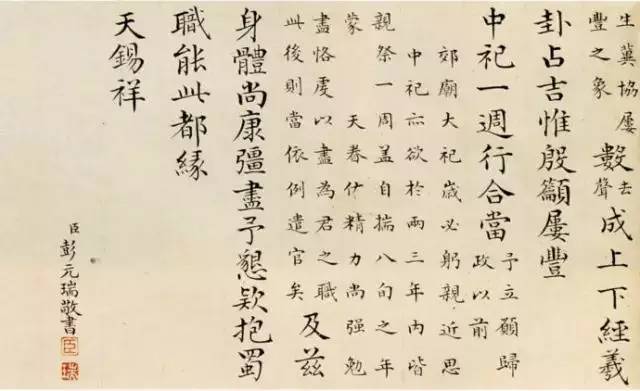 生冀協屢
豐之象
數去聲成上下經義
卦占吉惟殷籲屢豐
中祀一週行合當
予立願歸
政以前
郊廟大祀歲必躬親近思
中祀亦欲於兩三年內皆
親祭一周蓋自揣八旬之年
蒙 天眷精力尚强勉
盡恪虔以盡為君之職
此後則當依例遣官矣
及茲
身體尚康彊盡予懇欵抱蜀
職能此都緣
天錫祥
臣彭元瑞敬書
臣